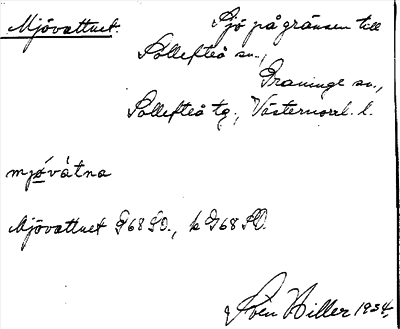 Mjövattnet. Sjö på gränsen till
Sollefteå sn.,
Graninge sn.,
Sollefteå tg., Västernorrl. l.
mjǿvátna
Mjövattnet G68 SO., k G68 SO.
Sven Hiller 1934.